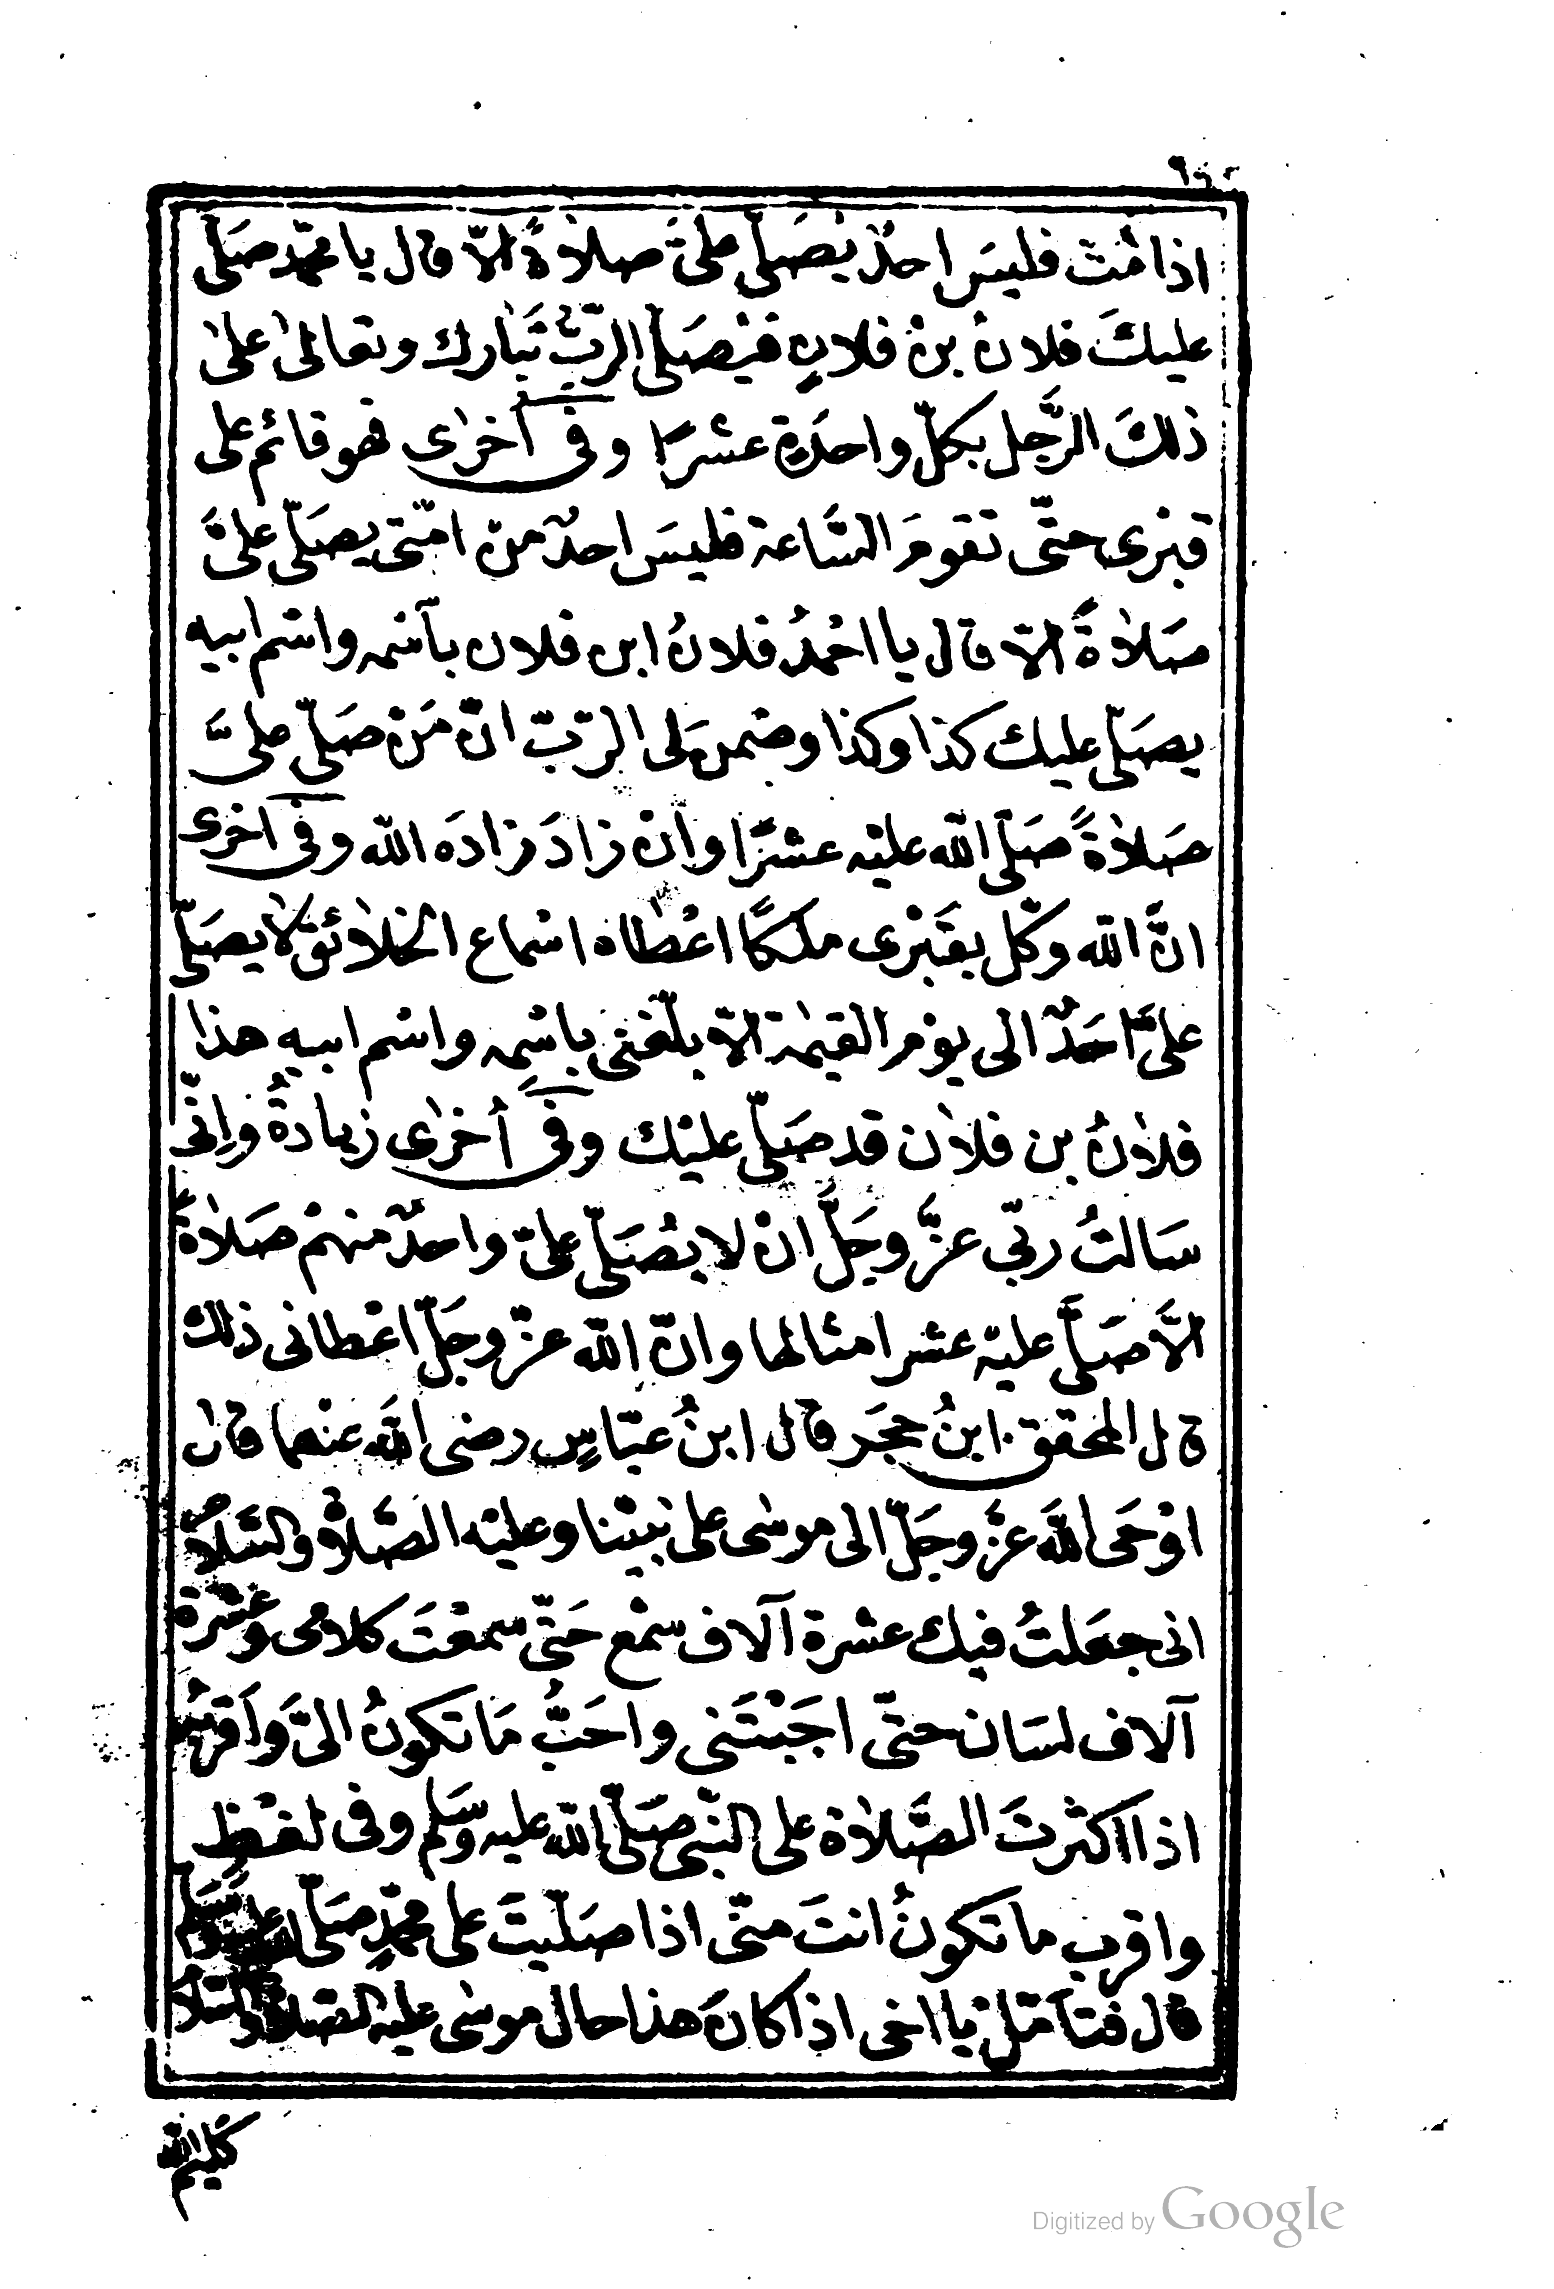 اذا مُتّ فليسَ احدٌ يُصَلّى علىَّ صلاةً الّا قال يا محمّد صَلّى
عليكَ فلانُ بنُ فلانٍ فيُصَلّى الربُّ تَبارك وتعالىٰ علىٰ
ذلكَ الرَّجل بكلّ واحدةٍ عشرًا وفى أخرٰى فهو قائم على
قبْرى حتّى تقومَ السَّاعة فليسَ احدٌ من امّتى يصَلّى علىَّ
صَلاةً الّا قال يا احْمدُ فلانُ ابن فلان بآسْمه واسْم ابيه
يصَلّى عليك كذا وكذا وضمن لى الرّبّ انّ مَنْ صَلّى علىَّ
صَلاةً صَلّى اللّه عليْه عشرًا وانْ زادَ زادَه اللّه وفى اخرى
انَّ اللّه وكّل بقَبْرى ملَكًا اعْطاه اسْماع الخلائق لا يصَلّى
علىَّ احَدٌ الى يوْم القيٰمة الّا بلّغنى باسْمِه واسْم ابيه هذا
فلانُ بن فلان قد صَلّى عليْك وفى أخرٰى زيادةُ وانّى
سَالتُ ربّى عزَّ وجَلَّ انْ لا يُصَلّى علىّ واحدٌ منهمْ صَلاةً
الّا صَلَّى عليْه عشر امثالها وانّ اللّه عزّ وجَلّ اعْطانى ذلك
قال المحقق ابنُ حجَر قال ابنُ عبّاسٍ رضى اللّه عنْهما قال
اوْحَى اللّه عزّ وجَلّ الى موسٰى على نبيّنا وعليْه الصّلاة والسّلام
انى جعَلتُ فيك عشرة آلاف سمْع حَتّى سمعْتَ كلامى وعشرة
آلاف لسَان حتّى اجَبْتَنى واحَبُّ مَا تكونُ الىَّ وأقربُه
اذا اكثرتَ الصّلاة على النّبى صَلّى اللّه عليه وسَلم وفى لفظٍ
واقرب ما تكونُ انتَ منّى اذا صَلّيتَ على محمّدٍ صَلّى اللّه عليه وسَلم
قال فتأمّل يا اخى اذا كانَ هذا حال موسٰى عليه الصّلاة والسّلام
كليم اللّه
Digitized by Google